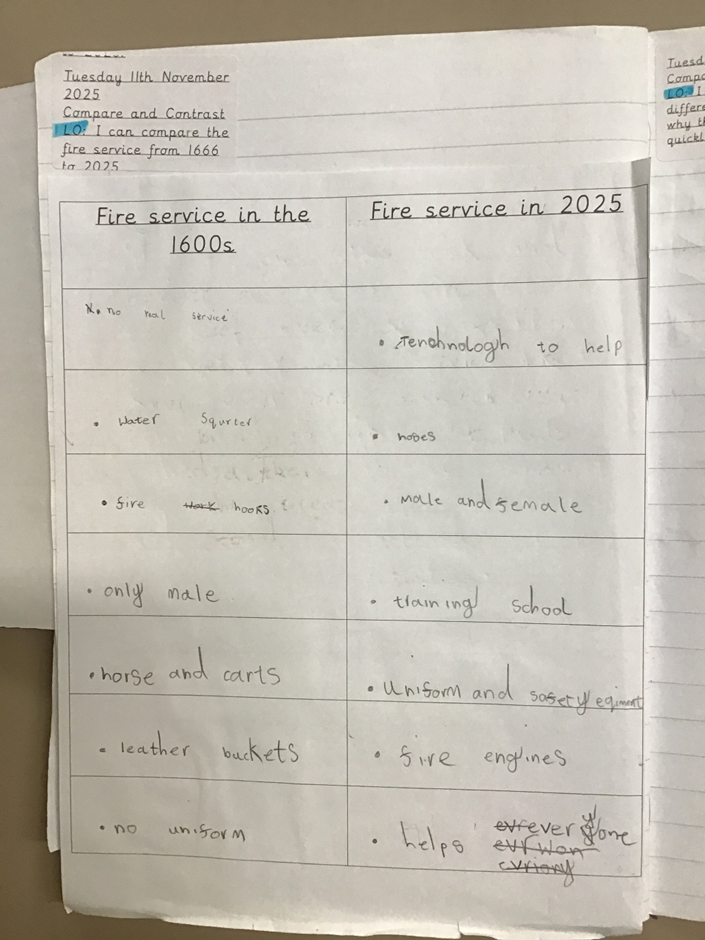 Tuesday 11th November
2025
Compare and Contrast
LO: I can compare the
fire service from 1666
to 2025
Tuesd
Compa
LO: I
differe
why th
quickl
Fire service in the
1600s
Fire service in 2025
no real service
• Tenohnologh to help
• Water Squrter
• hoses
• fire hooks
• Male and female
• only male
• training school
• horse and carts
• Uniform and safety eqiment
• leather buckets
• fire engines
• no uniform
• helps everyone